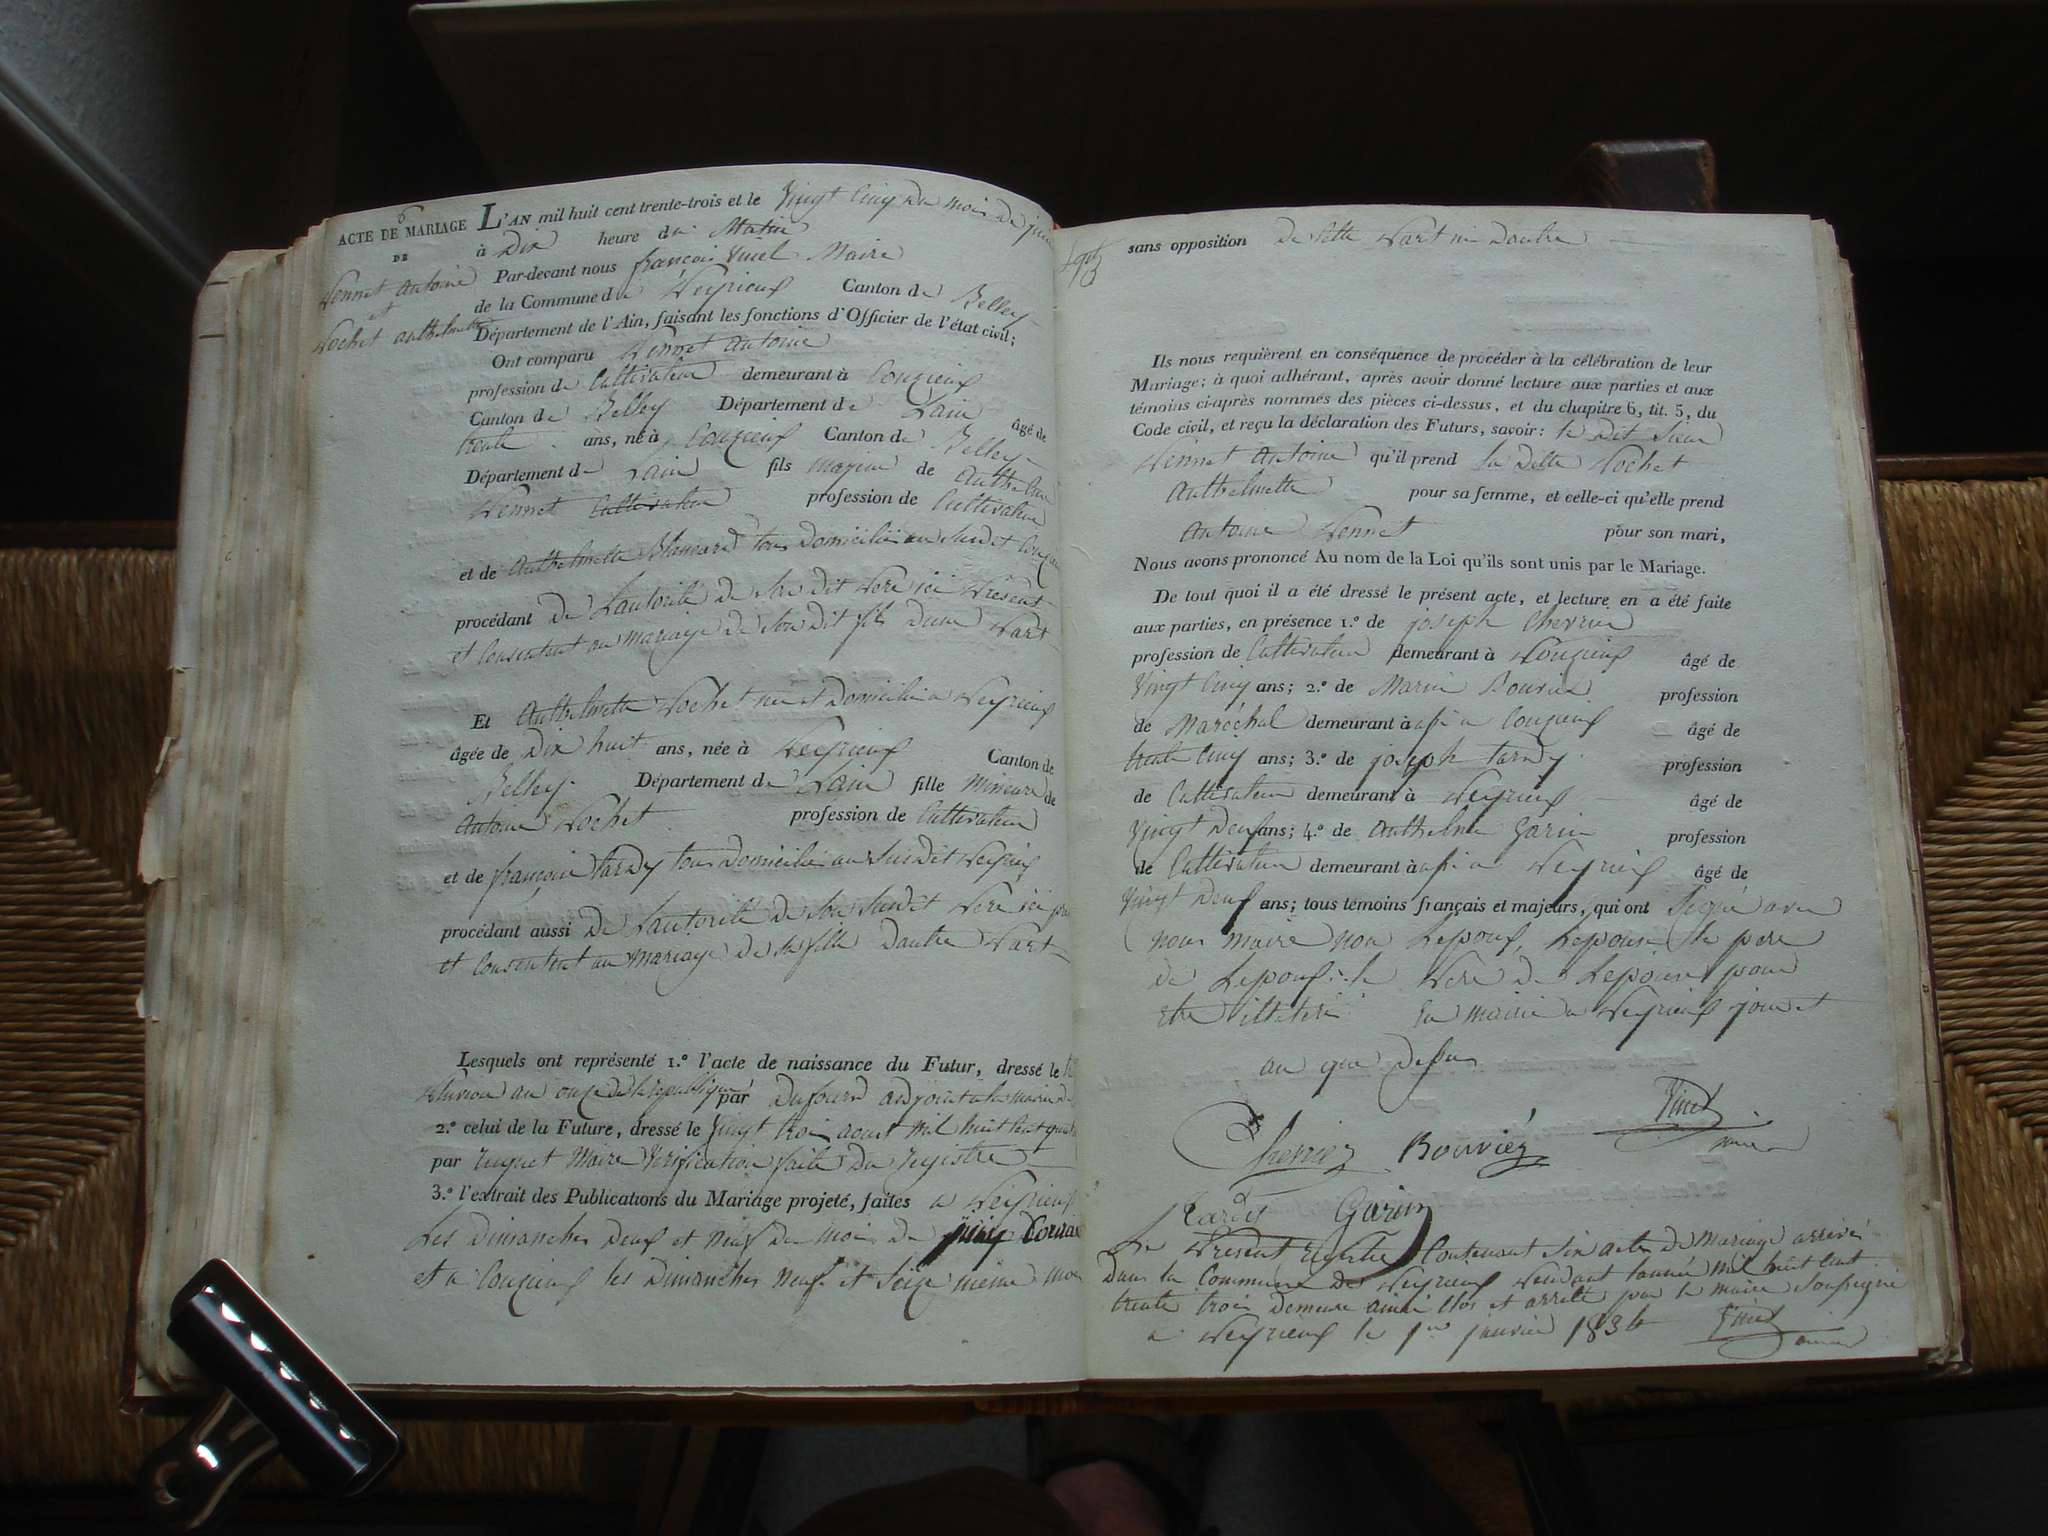 6
ACTE DE MARIAGE
DE
Pennet Antoine
et
Pochet Anthelmette
L'AN mil huit cent trente-trois et le Vingt Cinq du mois de juin
à Dix heure du Matin
Par-devant nous françois Vuiel Maire
de la Commune de Peyrieux Canton de Belley
Département de l'Ain, faisant les fonctions d'Officier de l'état civil;
Ont comparu Pennet Antoine
profession de Cultivateur demeurant à Conzieux
Canton de Belley Département de Lain âgé de
trente ans, né à Conzieux Canton de Belley
Département de Lain fils majeur de Anthelme
Pennet Cultivateur profession de Cultivateur
et de Anthelmette Blanchard tous domiciliés au Susdit Conzieux
procédant de Lautorité de Son dit Pere ici Présent
et Consentent au mariage de Son dit fils Dune Part
Et Anthelmette Pochet née et domicilié a Peyrieux
âgée de Dix huit ans, née à Peyrieux Canton de
Belley Département de Lain fille Mineure de
Antoine Pochet profession de Cultivateur
et de françoise tardy tous Domicilié au Susdit Peyrieux
procédant aussi de Lautorité de Son Susdit Pere ici
et Consentent au mariage de Sa fille Dautre Part
Lesquels ont représenté 1.º l'acte de naissance du Futur, dressé le
pluviose an onze de la republique par Dufour adjoint a la mairie
2.º celui de la Future, dressé le Vingt trois aoust mil huit cent
par Maire Verification faite Du registre
3.º l'extrait des Publications du Mariage projeté, faites a Peyrieux
Les Dimanches Deux et Neuf Du mois de juin Courant
et a Conzieux les Dimanches Neuf et Seize même mois
sans opposition de Cette Part ni Dautre
Ils nous requièrent en conséquence de procéder à la célébration de leur
Mariage; à quoi adhérant, après avoir donné lecture aux parties et aux
témoins ci-après nommés des pièces ci-dessus, et du chapitre 6, tit. 5, du
Code civil, et reçu la déclaration des Futurs, savoir: le dit Sieur
Pennet Antoine qu'il prend La Delle Pochet
Anthelmette pour sa femme, et celle-ci qu'elle prend
Antoine Pennet pour son mari,
Nous avons prononcé Au nom de la Loi qu'ils sont unis par le Mariage.
De tout quoi il a été dressé le présent acte, et lecture en a été faite
aux parties, en présence 1.º de joseph Chevrier
profession de Cultivateur demeurant à Conzieux âgé de
Vingt Cinq ans; 2.º de Marin Bouvier profession
de Maréchal demeurant à aussi a Conzieux âgé de
trente Cinq ans; 3.º de joseph tardy profession
de Cultivateur demeurant à Peyrieux âgé de
Vingt Deux ans; 4.º de Anthelme Garin profession
de Cultivateur demeurant à aussi a Peyrieux âgé de
Vingt Deux ans; tous témoins français et majeurs, qui ont Signé avec
nous maire non Lepoux, Lepouse, le pere
de Lepoux, le Pere de Lepouse pour
Etre illiteré En mairie a Peyrieux jour et
an que Dessus
Chevrier Bouvier
maire
Tardy Garin
Le Present Registre Contenant Six actes de mariage arrivés
Dans la Commune de Peyrieux Pendant lannée mil huit cent
trente trois demeure ainsi Clos et arreté par le maire Soussigné
a Peyrieux le 1er janvier 1834
maire